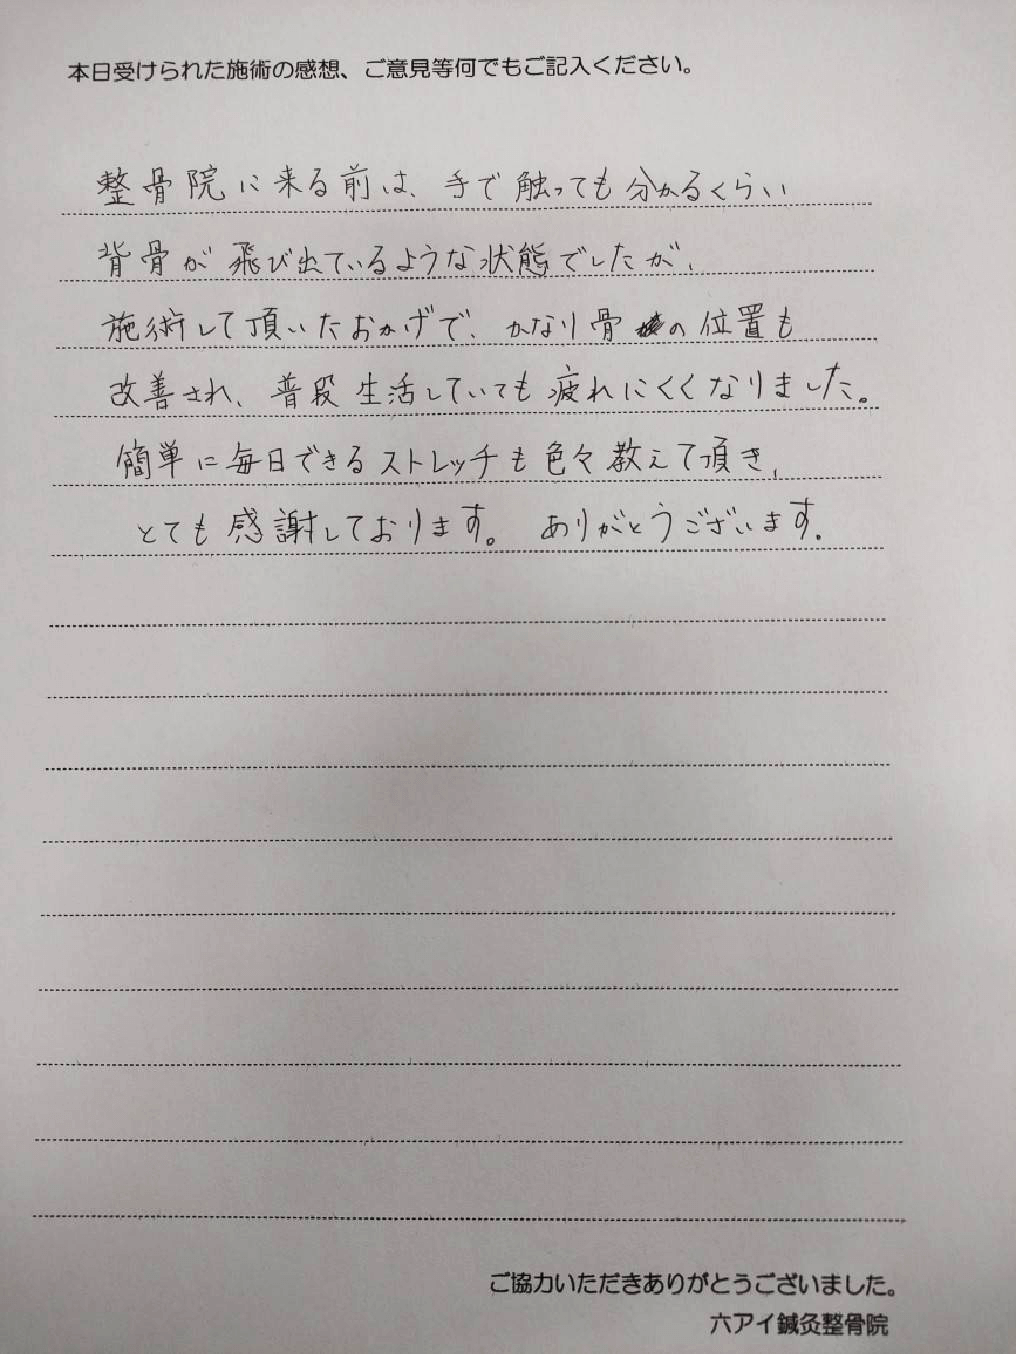 本日受けられた施術の感想、ご意見等何でもご記入ください。
整骨院に来る前は、手で触っても分かるくらい
背骨が飛び出ているような状態でしたが、
施術して頂いたおかげで、かなり骨の位置も
改善され、普段生活していても疲れにくくなりました。
簡単に毎日できるストレッチも色々教えて頂き、
とても感謝しております。ありがとうございます。
ご協力いただきありがとうございました。
六アイ鍼灸整骨院